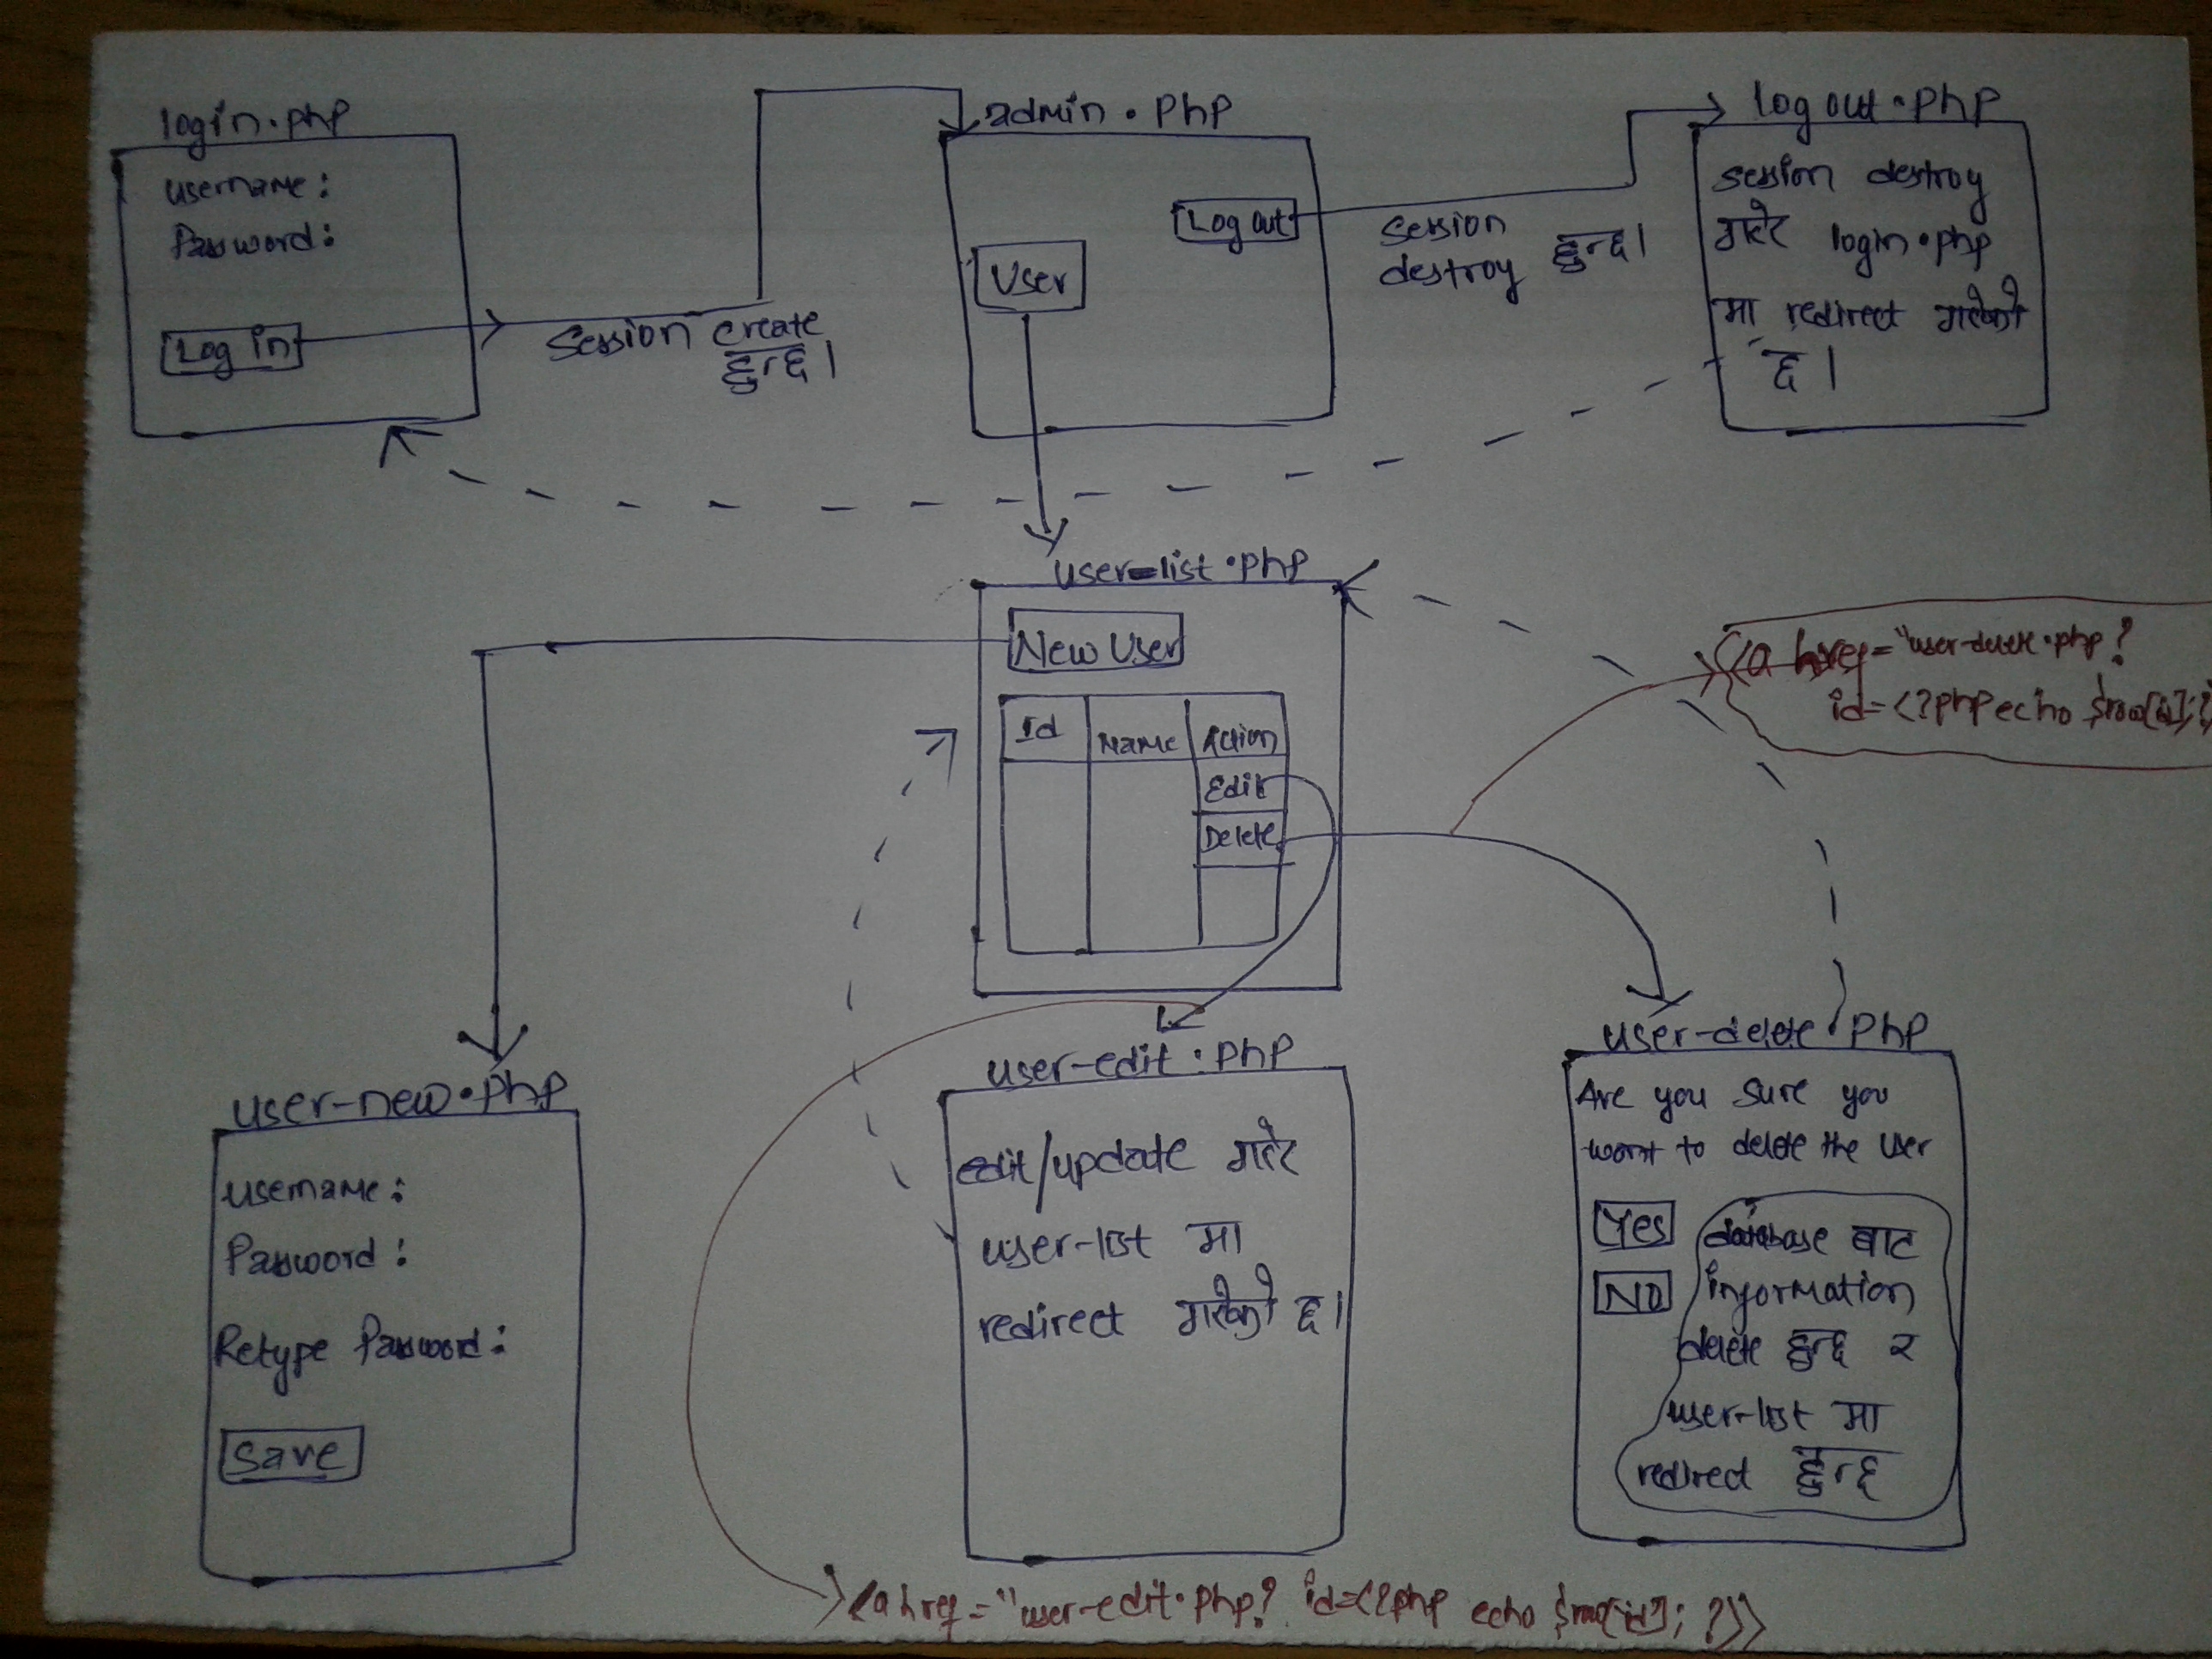 login.php
username:
Password:
Log in
session create
हुन्छ।
admin.php
Log out
User
session
destroy हुन्छ।
log out.php
session destroy
गरेर login.php
मा redirect गरेको
छ।
user-list.php
New User
Id Name Action
Edit
Delete
<a href="user-delete.php?
id=<?php echo $row[id];?
user-new.php
username:
Password:
Retype Password:
save
user-edit.php
edit/update गरेर
user-list मा
redirect गरेको छ।
user-delete.php
Are you sure you
want to delete the user
Yes
NO
database बाट
information
delete हुन्छ र
user-list मा
redirect हुन्छ
<a href="user-edit.php? id=<?php echo $row[id]; ?>>